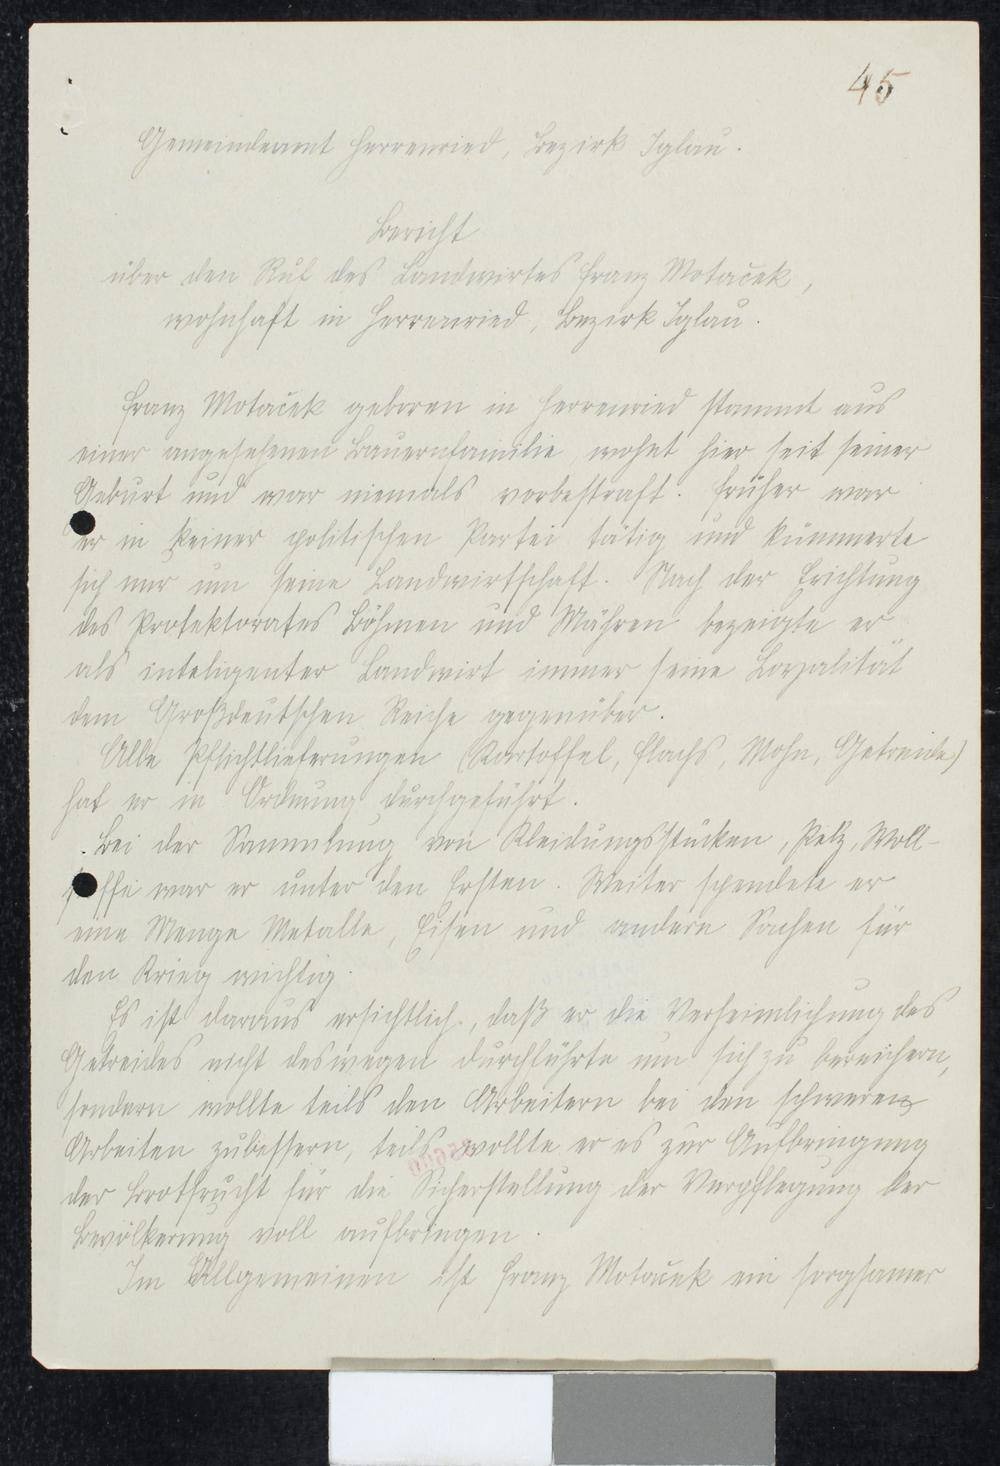 45
Gemeindeamt Herrenried, Bezirk Iglau.
Bericht
über den Ruf des Landwirtes Franz Motaček,
wohnhaft in Herrenried, Bezirk Iglau.
Franz Motaček geboren in Herrenried stammt aus
einer angesehenen Bauernfamilie, wohnt hier seit seiner
Geburt und war niemals vorbestraft. Früher war
er in keiner politischen Partei tätig und kümmerte
sich nur um seine Landwirtschaft. Nach der Erichtung
des Protektorates Böhmen und Mähren bezeigte er
als inteligenter Landwirt immer seine Loyalität
dem Großdeutschen Reiche gegenüber.
Alle Pflichtlieferungen (Kartoffel, Flachs, Mohn, Getreide)
hat er in Ordnung durchgeführt.
Bei der Sammlung von Kleidungsstücken, Pelz, Woll-
stoffe war er unter den Ersten. Weiter spendete er
eine Menge Metalle, Eisen und andere Sachen für
den Krieg wichtig.
Es ist daraus ersichtlich, daß er die Verheimlichung des
Getreides nicht deswegen durchführte um sich zu bereichern,
sondern wollte teils den Arbeitern bei den schweren
Arbeiten zubessern, teils wollte er es zur Aufbringung
der Brotfrucht für die Sicherstellung der Verpflegung der
Bevölkerung voll aufbringen.
Im Allgemeinen ist Franz Motaček ein sorgsamer